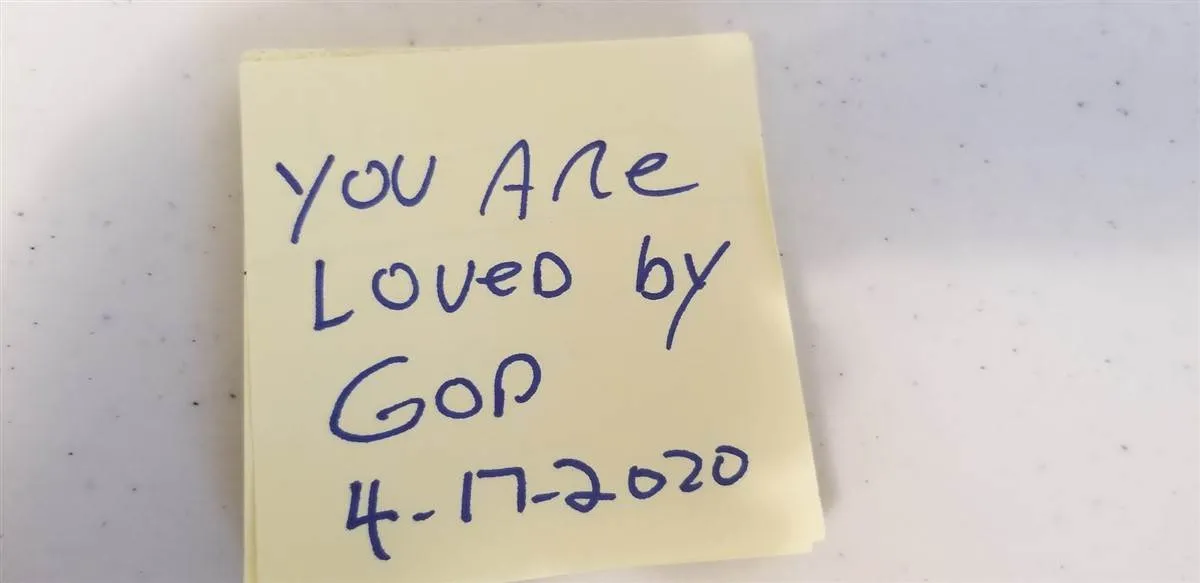 YOU ARe
LOVeD by
GOD
4-17-2020